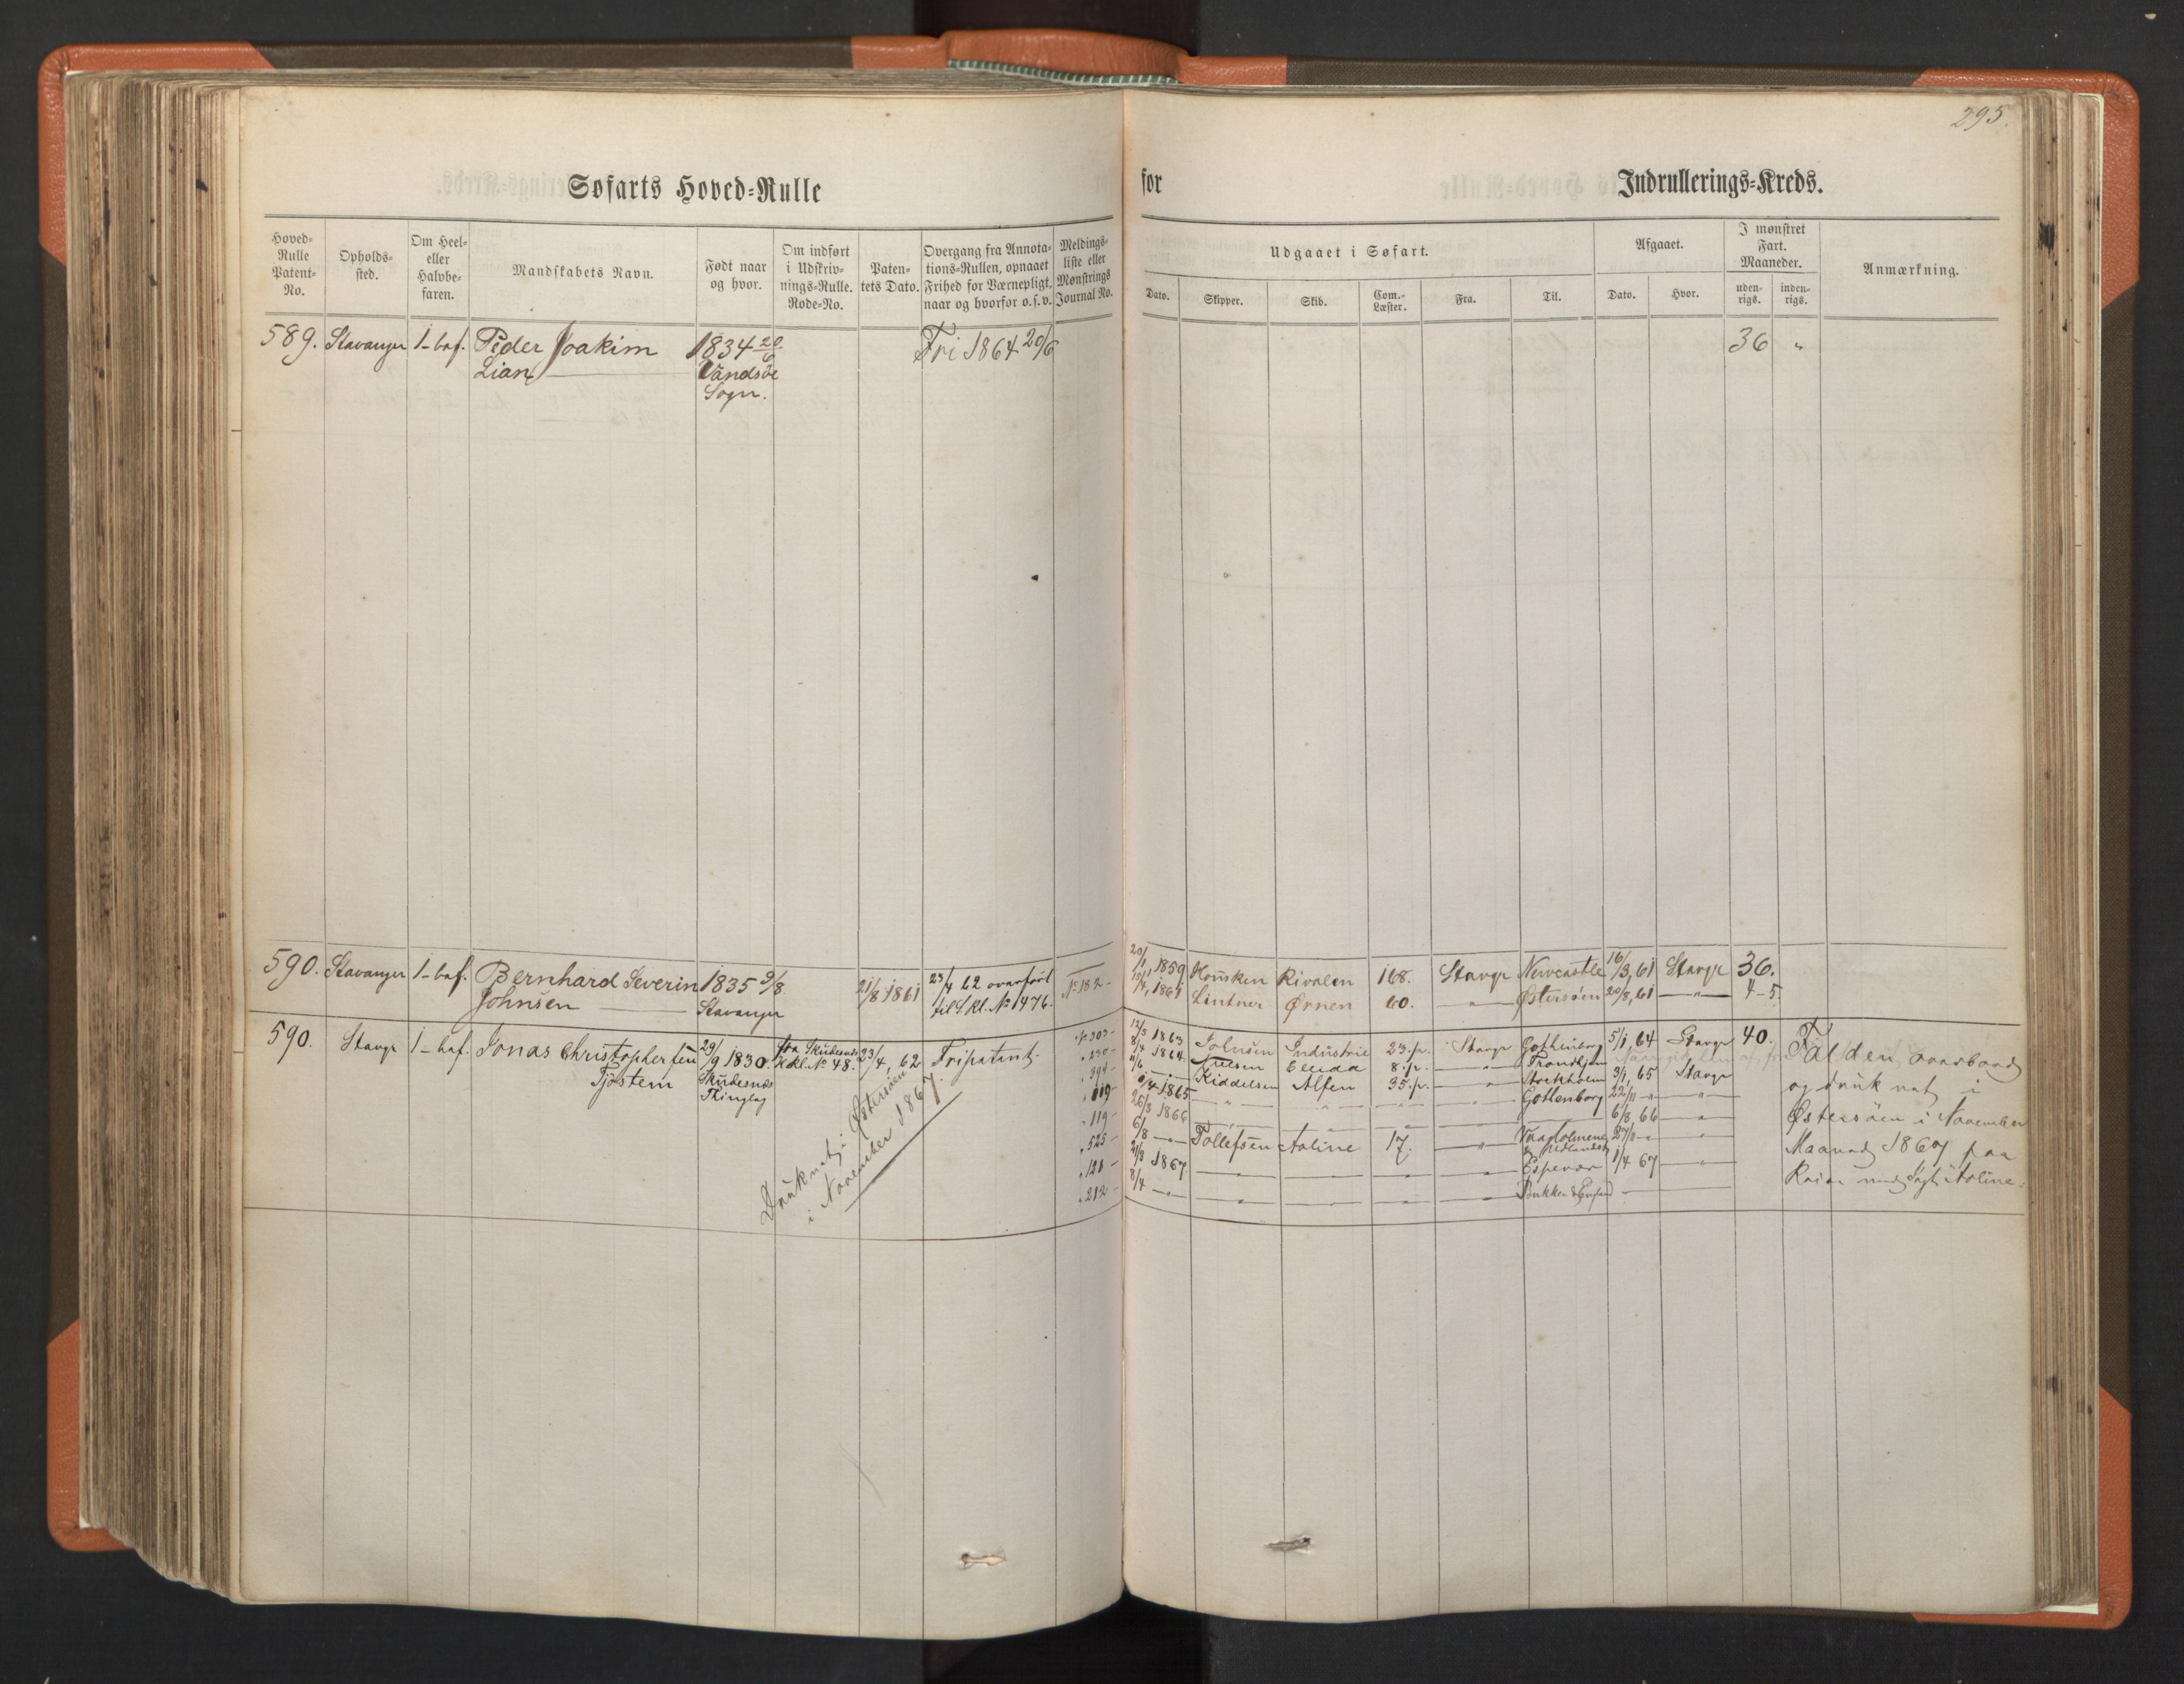 295.
Søfarts Hoved=Rulle
for
Indrullerings=Kreds.
Hoved=Rulle Patent=No.
Opholds=sted.
Om Heel= eller Halvbe=faren.
Mandskabets Navn.
Født naar og hvor.
Om indført i Udskriv=nings=Rulle. Rode=No.
Paten=tets Dato.
Overgang fra Annota=tions=Rullen, opnaaet Frihed for Værnepligt, naar og hvorfor o.s.v.
Meldings=liste eller Mønstrings Journal No.
Udgaaet i Søfart.
Dato.
Skipper.
Skib.
Com.=Læster.
Fra.
Til.
Afgaaet.
Dato.
Hvor.
I mønstret Fart. Maaneder.
uden=rigs.
inden=rigs.
Anmærkning.
589. Stavanger 1-baf. Peder Joakim 1834 20/6 Fri 1864 20/6 36 "
Lian Vandsøe
Sogn.
590. Stavanger 1-baf. Bernhard Severin 1835 9/8 21/8 1861 23/4 62 overført No 182-
Johnsen Stavanger til S. Rl. No 1476.
20/1 1859 Housken Rivalen 168. Stavgr Newcastle 16/3, 61 Stavgr 36.
1861 Lintner Ørnen 60. " Østersøen 20/8, 61 " 4-5
590. Stavgr 1-haf. Jonas Christophersen 29/9 1830. fra Skudesnes 23/4, 62 Fripatent
Tjøstem Skudesnæs H.Rl. No 48.
Thinglag
Druknet i Østersøen
i November 1867.
No 303-
" 119-
" 119-
" 525-
" 128-
" 212-
12/3 1863 Industrie 23.p. Stavgr Gothenborg 5/1, 64 Stavgr 40.
8/4 1864 8.p. " Trondhjem
11/6 Kiddelsen Alfen 35.p. " Stockholm 3/1, 65 Stavgr
1865 " " " " Gothenborg 22/11 "
26/3 1866 " " " 6/8, 66 "
6/8 " Tollefsen Aoline 17. " "
21/3 1867 " " " " Espevær 1/4 67 "
8/4 " " " " "
Falden overbord
og druknet i
Østersøen i November
Maaned 1867 paa
Reise med Aoline.